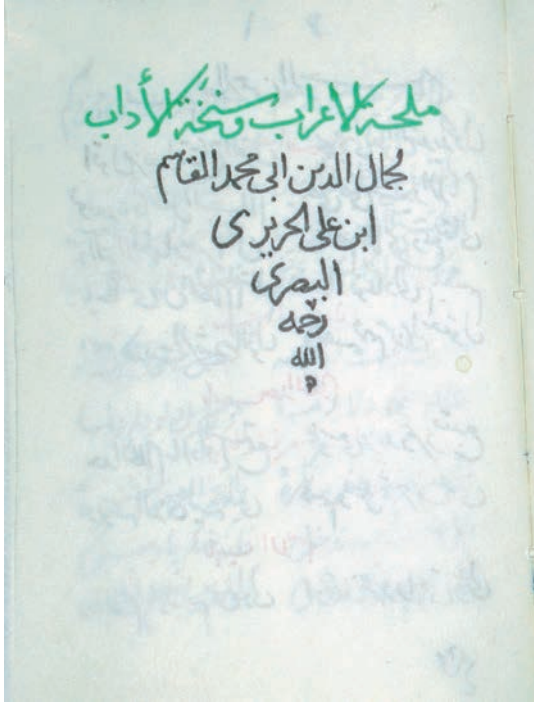 ملحة الاعراب وسنخة الأداب
لجمال الدين ابى محمد القاسم
ابن على الحريرى
البصرى
رحمه
الله